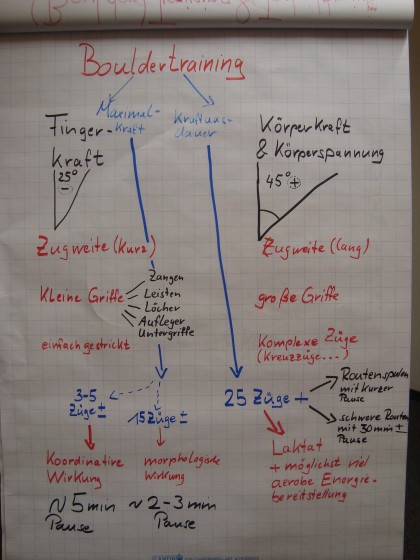 Bouldertraining
Maximal-
kraft
Kraftaus-
dauer
Finger-
kraft
25°
-
Körperkraft
& Körperspannung
45° +
Zugweite (kurz)
Zugweite (lang)
Kleine Griffe
Zangen
Leisten
Löcher
Aufleger
Untergriffe
große Griffe
einfach gestrickt
Komplexe Züge
(Kreuzzüge...)
3-5
Züge ±
15 Züge ±
25 Züge +
Routenspulen
mit kurzer
Pause
schwere Routen
mit 30 min ±
Pause
Koordinative
Wirkung
morphologische
Wirkung
Laktat
+ möglichst viel
aerobe Energie-
bereitstellung
~ 5 min
Pause
~ 2-3 min
Pause